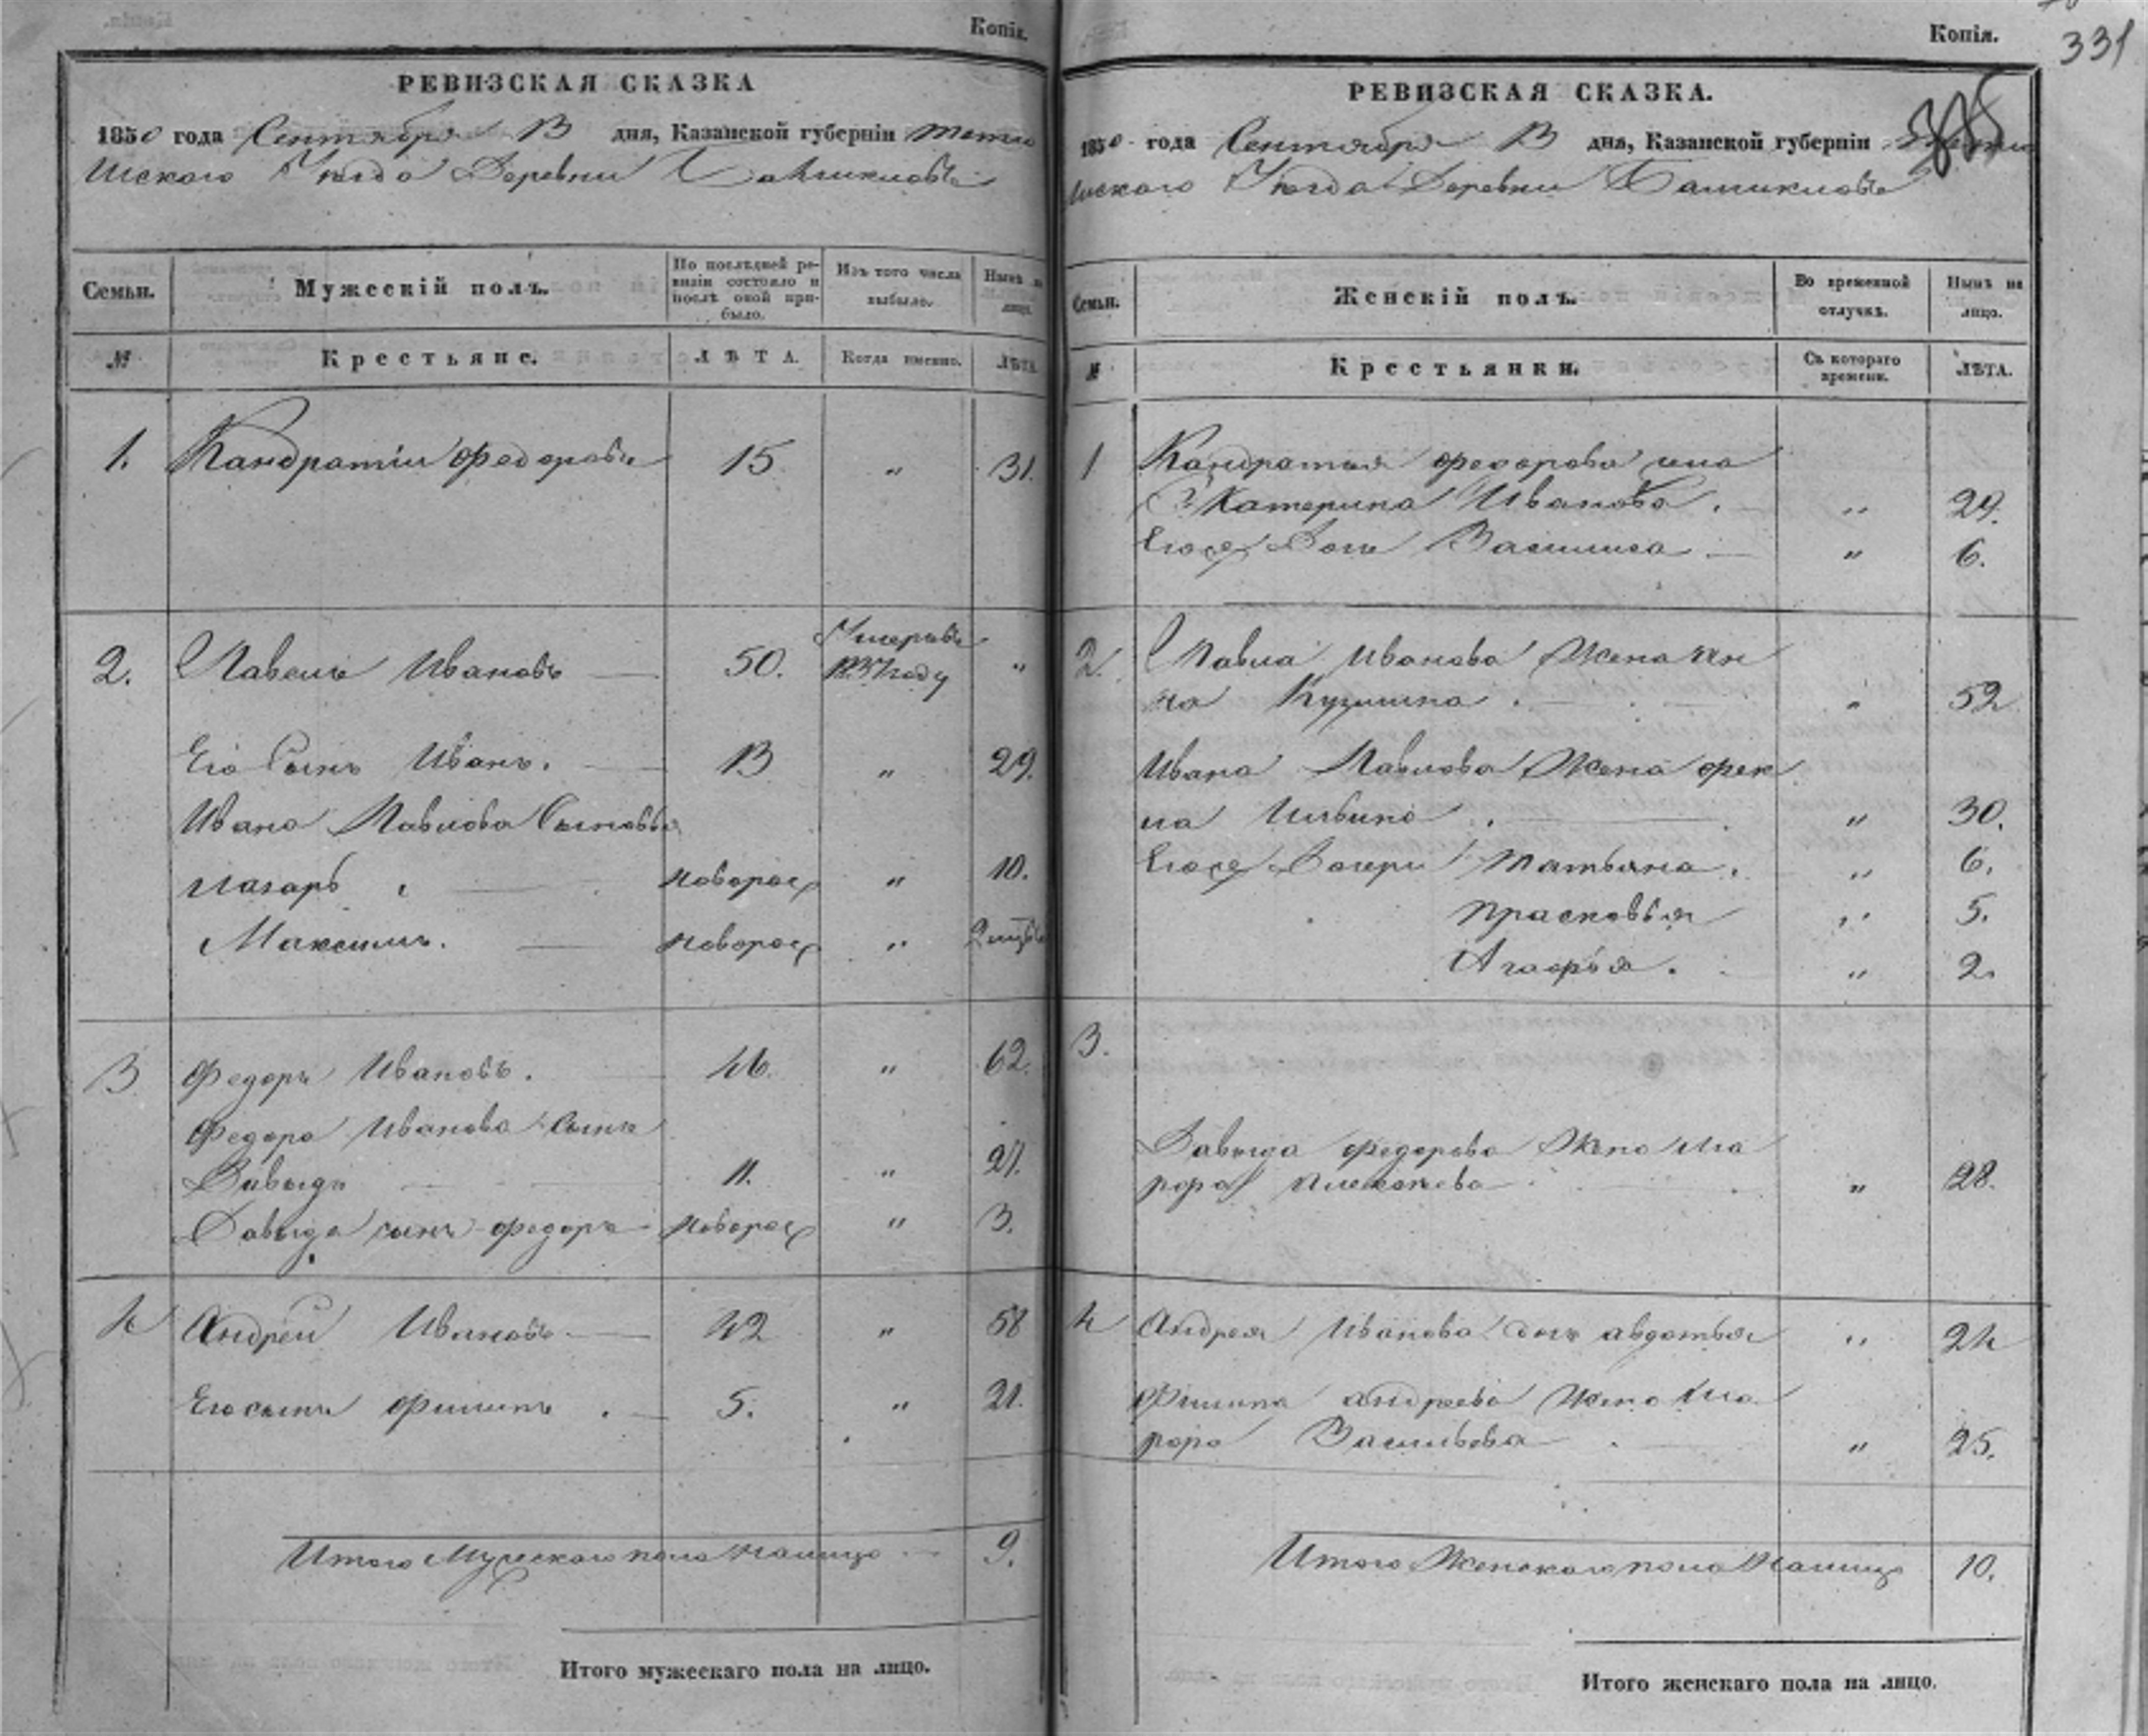 Копія.
РЕВИЗСКАЯ СКАЗКА
1850 года Сентября 13 дня, Казанской губерніи Тетю
шскаго Уезда Деревни
Семьи. Мужескій полъ. По послѣдней ре-визіи состояло и послѣ оной при-было. Изъ того числа выбыло. Нынѣ на лицо.
№ Крестьяне. ЛѢТА. Когда именно. ЛѢТА.
1. Кандратіи Федоровъ 15 " 31.
2. Павелъ Ивановъ 50. Умеръ въ году "
Его Сынъ Иванъ. 13 " 29.
Ивана Павлова Сыновья
Лазарь новорож " 10.
Максимъ. новорож " 2 мцъ
3 Федоръ Ивановъ. 46. " 62.
Федора Иванова Сынъ
Давыдъ 11. " 27.
Давыда сынъ Федоръ новорож " 3.
4 Андрей Ивановъ 42 " 58
Его сынъ Филипъ 5. " 21.
Итого Мужескаго пола налицо 9.
Итого мужескаго пола на лицо.
Копія.
331
РЕВИЗСКАЯ СКАЗКА.
1850 года Сентября 13 дня, Казанской губерніи Тетю
шскаго Уезда Деревни
Семьи. Женскій полъ. Во временной отлучкѣ. Нынѣ на лицо.
№ Крестьянки. Съ котораго времени. ЛѢТА.
1 Кандратья Федорова жена
Катерина Иванова. " 29.
Егоже Дочь Василиса " 6.
2. Павла Иванова Жена Ан
на Кузмина. " 52
Ивана Павлова Жена Фек
ла Ильина " 30.
Егоже Дочери Татьяна. " 6.
Прасковья " 5.
Агафья. " 2.
3.
Давыда Федорова Жена Ма
рфа " 28.
4 Андрея Иванова дочь Авдотья " 24
Филипа Андреева Жена Ма
рфа Васильева " 25.
Итого Женскаго пола Налицо 10.
Итого женскаго пола на лицо.